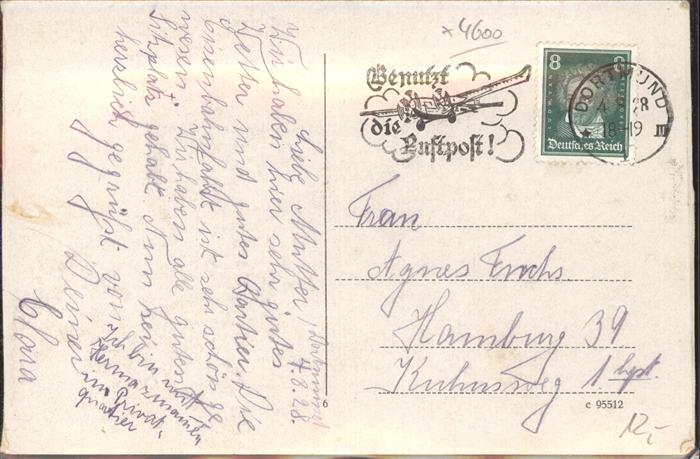 x 4600
Benutzt
die
Luftpost!
8 8
Deutsches Reich
DORTMUND
4. 8. 28
18-19
III
Frau
Agnes Fuchs.
Hamburg 39
1 hpt.
6
c 95512
12,-
Dortmund
4.8.28.
Liebe Mutter!
Wir haben hier sehr gutes
Wetter und gutes Quartier. Die
Eisenbahnfahrt ist sehr schön ge-
wesen. Wir haben alle guten
Sitzplatz gehabt. Nun sei
herzlich gegrüßt von
Deiner
Clara
Ich bin mit
im Privat-
quartier